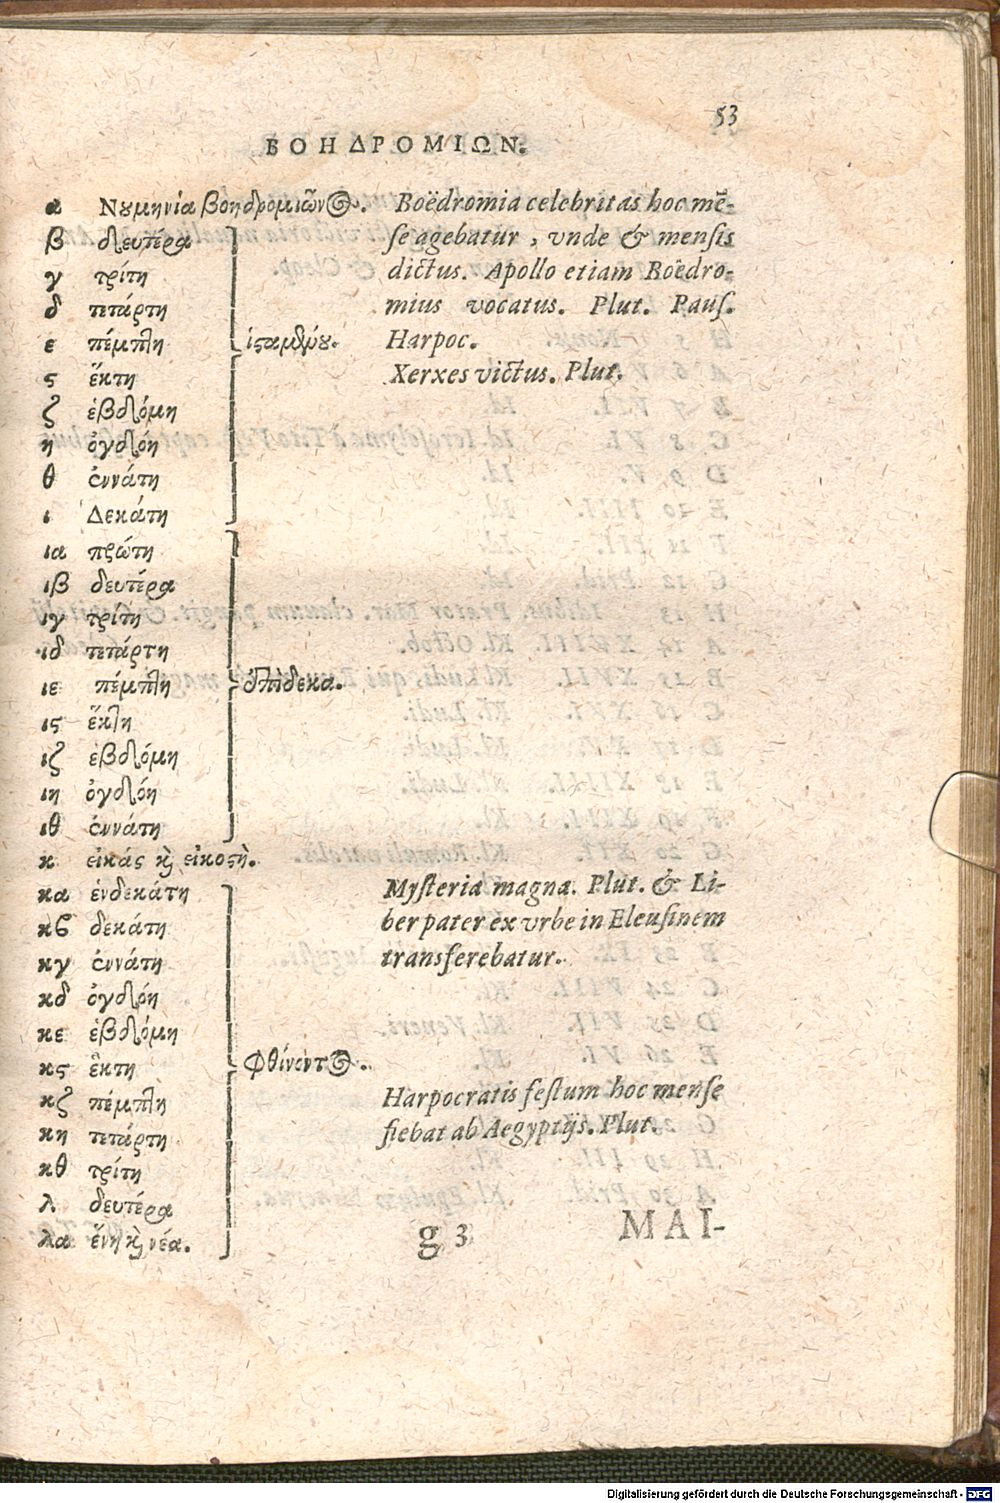 53
ΒΟΗΔΡΟΜΙΩΝ.
α Νουμηνία βοηδρομιῶνος. Boëdromia celebritas hoc mē-
β δευτέρα se agebatur, vnde & mensis
γ τρίτη dictus. Apollo etiam Boëdro-
δ τετάρτη mius vocatus. Plut. Paus.
ε πέμπτη ἱσταμένου. Harpoc.
ς ἕκτη Xerxes victus. Plut.
ζ ἑβδόμη
η ὀγδόη
θ ἐννάτη
ι Δεκάτη
ια πρώτη
ιβ δευτέρα
ιγ τρίτη
ιδ τετάρτη
ιε πέμπτη ἐπίδεκα.
ις ἕκτη
ιζ ἑβδόμη
ιη ὀγδόη
ιθ ἐννάτη
κ εἰκάς καὶ εἰκοστὴ.
κα ἑνδεκάτη Mysteria magna. Plut. & Li-
κβ δεκάτη ber pater ex vrbe in Eleusinem
κγ ἐννάτη transferebatur.
κδ ὀγδόη
κε ἑβδόμη
κς ἕκτη φθίνοντος.
κζ πέμπτη Harpocratis festum hoc mense
κη τετάρτη fiebat ab Aegyptijs. Plut.
κθ τρίτη
λ δευτέρα
λα ἕνη καὶ νέα.
g 3 MAI-
Digitalisierung gefördert durch die Deutsche Forschungsgemeinschaft - DFG